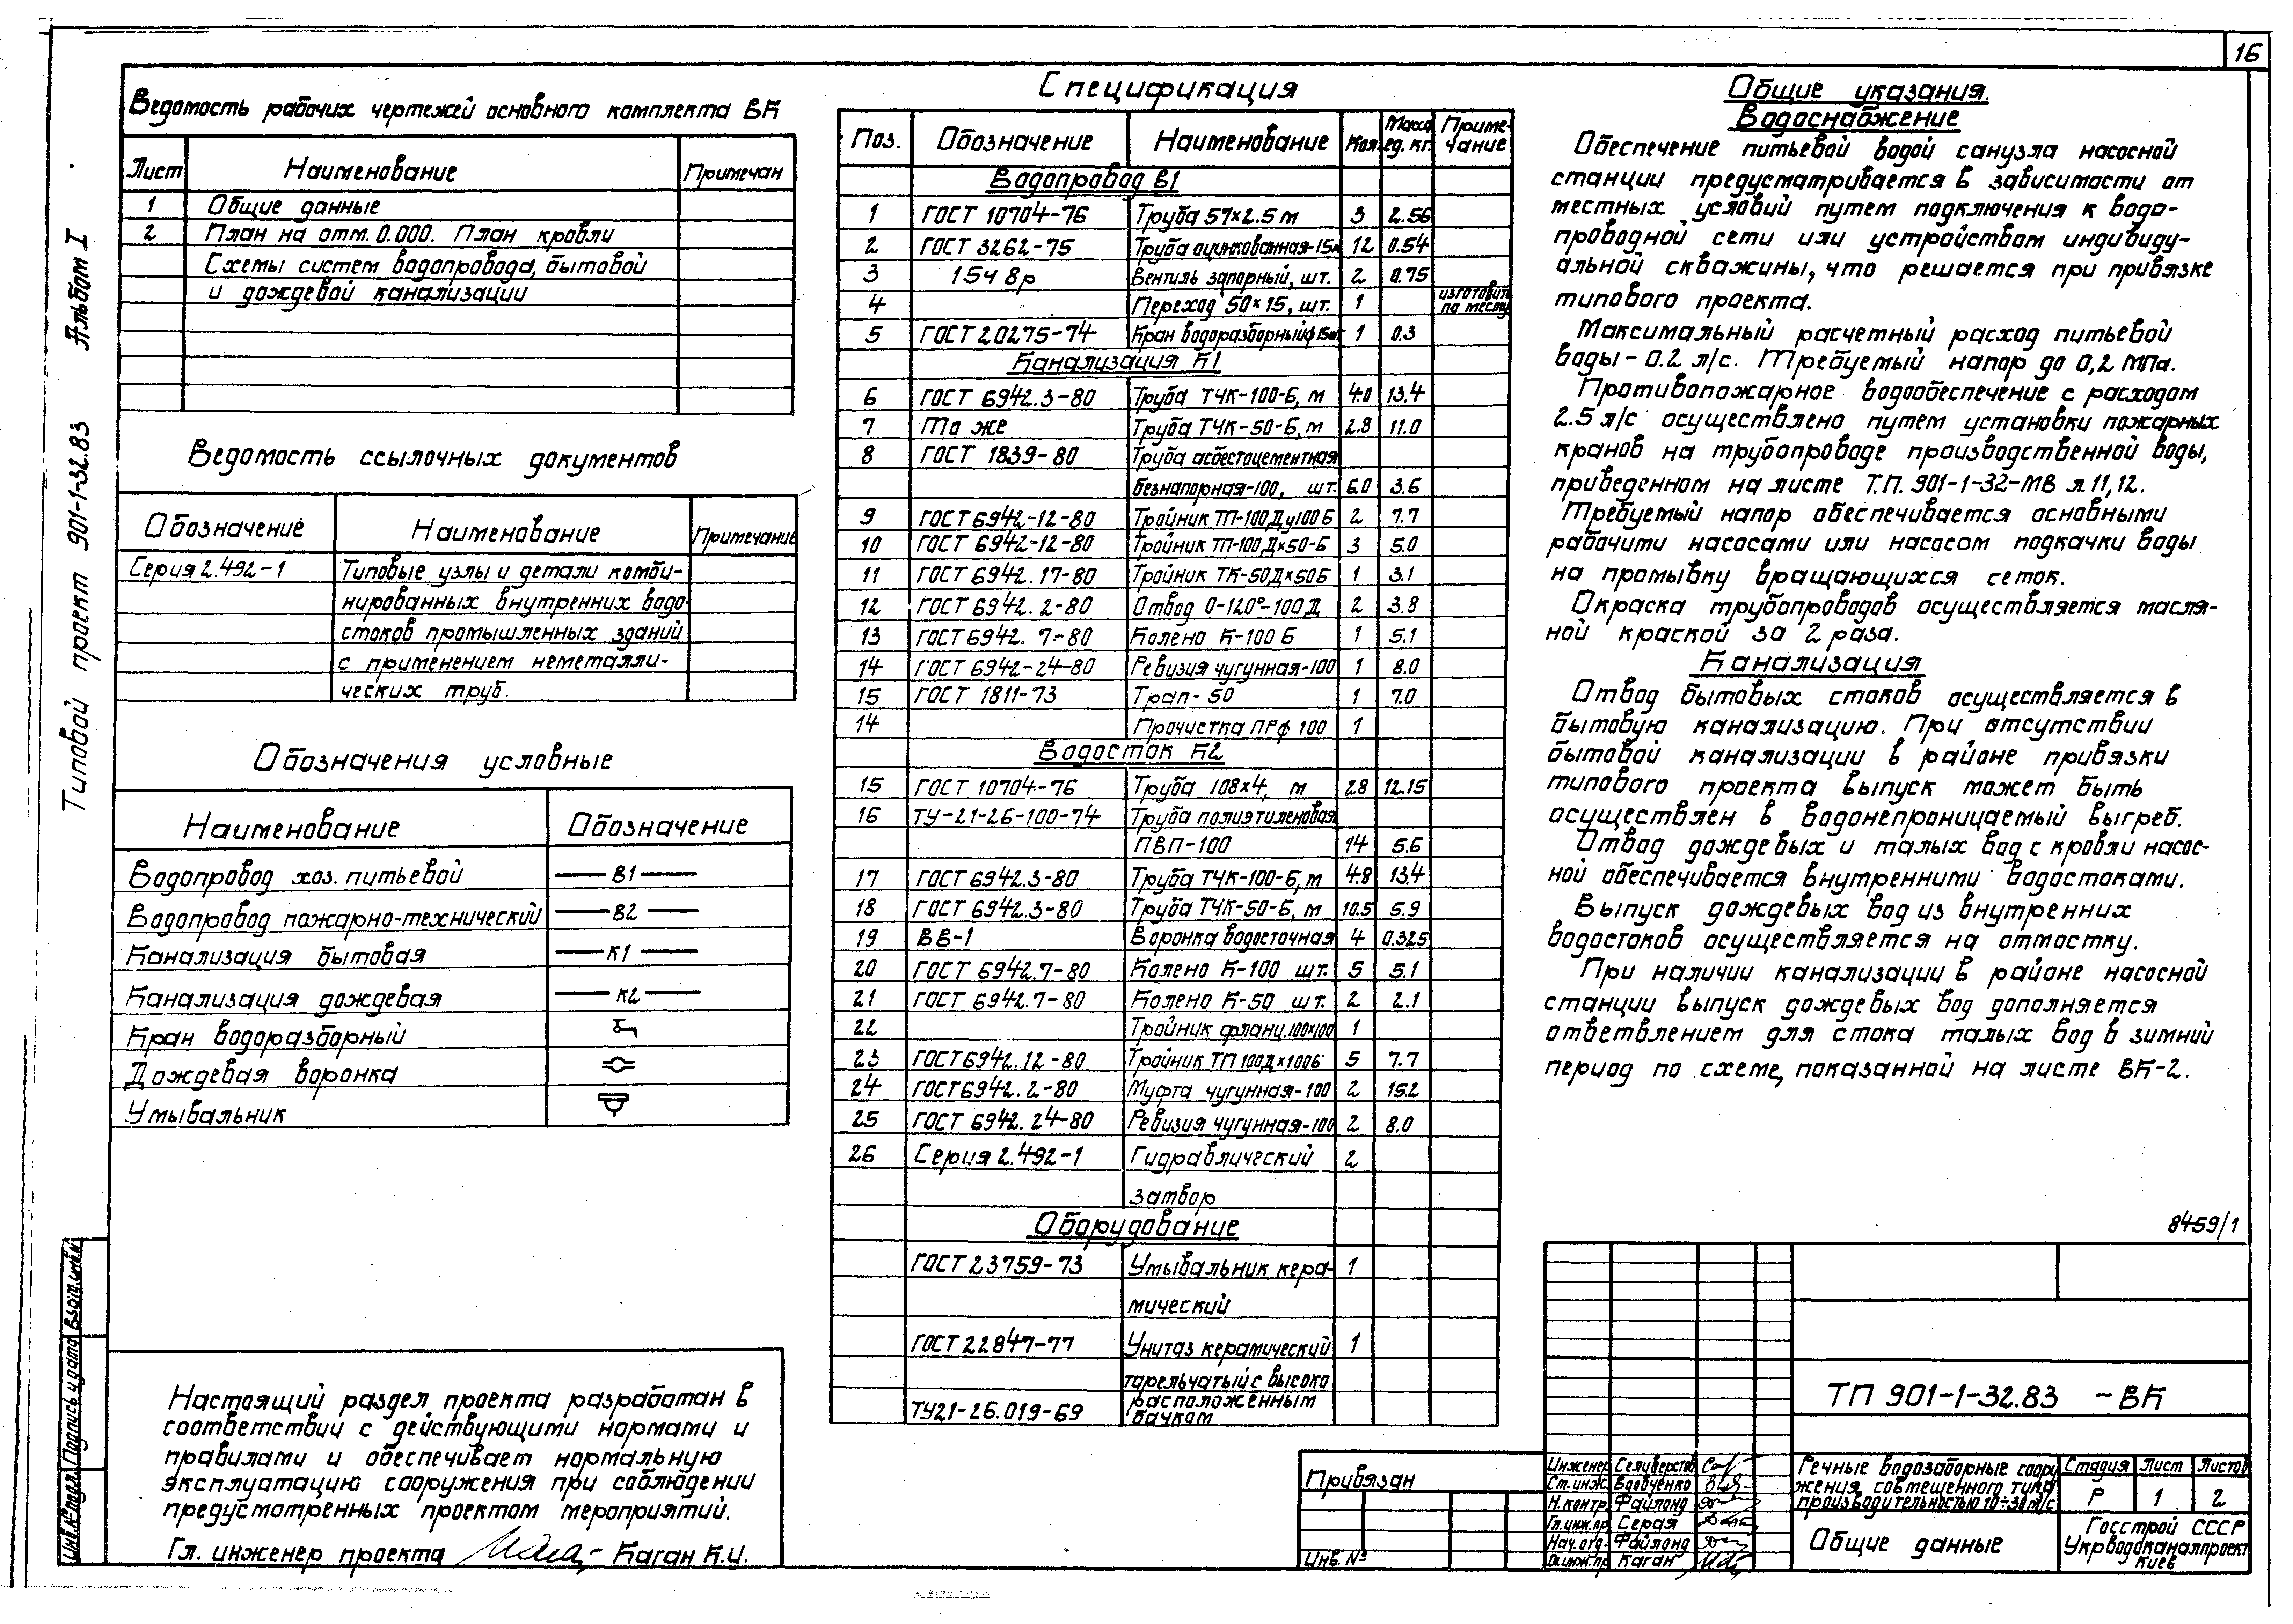 16
Альбом I
Типовой проект 901-1-32.83
Ведомость рабочих чертежей основного комплекта ВК
Лист Наименование Примечан
1 Общие данные
2 План на отм. 0.000. План кровли
Схемы систем водопровода, бытовой
и дождевой канализации
Ведомость ссылочных документов
Обозначение Наименование Примечание
Серия 2.492-1 Типовые узлы и детали комби-
нированных внутренних водо-
стоков промышленных зданий
с применением неметалли-
ческих труб.
Обозначения условные
Наименование Обозначение
Водопровод хоз. питьевой В1
Водопровод пожарно-технический В2
Канализация бытовая К1
Канализация дождевая К2
Кран водоразборный
Дождевая воронка
Умывальник
Настоящий раздел проекта разработан в
соответствии с действующими нормами и
правилами и обеспечивает нормальную
эксплуатацию сооружения при соблюдении
предусмотренных проектом мероприятий.
Гл. инженер проекта Каган К.И.
Взам.инв.№
Подпись и дата
Инв.№ подл.
Спецификация
Поз. Обозначение Наименование Кол. Масса ед. кг. Приме-чание
Водопровод В1
1 ГОСТ 10704-76 Труба 57×2.5 м 3 2.56
2 ГОСТ 3262-75 Труба оцинкованная-15м 12 0.54
3 15ч 8р Вентиль запорный, шт. 2 0.75
4 Переход 50×15, шт. 1 изготовить по месту
5 ГОСТ 20275-74 Кран водоразборный ф15шт 1 0.3
Канализация К1
6 ГОСТ 6942.3-80 Труба ТЧК-100-Б, м 4.0 13.4
7 То же Труба ТЧК-50-Б, м 2.8 11.0
8 ГОСТ 1839-80 Труба асбестоцементная
безнапорная-100, шт. 6.0 3.6
9 ГОСТ 6942-12-80 Тройник ТП-100Ду100Б 2 7.7
10 ГОСТ 6942-12-80 Тройник ТП-100Д×50-Б 3 5.0
11 ГОСТ 6942.17-80 Тройник ТК-50Д×50Б 1 3.1
12 ГОСТ 6942.2-80 Отвод О-120°-100Д 2 3.8
13 ГОСТ 6942.7-80 Колено К-100Б 1 5.1
14 ГОСТ 6942-24-80 Ревизия чугунная-100 1 8.0
15 ГОСТ 1811-73 Трап-50 1 7.0
14 Прочистка ПРф 100 1
Водосток К2
15 ГОСТ 10704-76 Труба 108×4, м 28 12.15
16 ТУ-21-26-100-74 Труба полиэтиленовая
ПВП-100 14 5.6
17 ГОСТ 6942.3-80 Труба ТЧК-100-Б, м 4.8 13.4
18 ГОСТ 6942.3-80 Труба ТЧК-50-Б, м 10.5 5.9
19 ВВ-1 Воронка водосточная 4 0.325
20 ГОСТ 6942.7-80 Колено К-100 шт. 5 5.1
21 ГОСТ 6942.7-80 Колено К-50 шт. 2 2.1
22 Тройник фланц.100×100 1
23 ГОСТ 6942.12-80 Тройник ТП 100Д×100Б 5 7.7
24 ГОСТ 6942.2-80 Муфта чугунная-100 2 15.2
25 ГОСТ 6942.24-80 Ревизия чугунная-100 2 8.0
26 Серия 2.492-1 Гидравлический 2
затвор
Оборудование
ГОСТ 23759-73 Умывальник кера- 1
мический
ГОСТ 22847-77 Унитаз керамический 1
тарельчатый с высоко
ТУ21-26.019-69 расположенным
бачком
Общие указания.
Водоснабжение
Обеспечение питьевой водой санузла насосной
станции предусматривается в зависимости от
местных условий путем подключения к водо-
проводной сети или устройством индивиду-
альной скважины, что решается при привязке
типового проекта.
Максимальный расчетный расход питьевой
воды - 0.2 л/с. Требуемый напор до 0,2 МПа.
Противопожарное водообеспечение с расходом
2.5 л/с осуществлено путем установки пожарных
кранов на трубопроводе производственной воды,
приведенном на листе Т.П. 901-1-32-МВ л.11,12.
Требуемый напор обеспечивается основными
рабочими насосами или насосом подкачки воды
на промывку вращающихся сеток.
Окраска трубопроводов осуществляется масля-
ной краской за 2 раза.
Канализация
Отвод бытовых стоков осуществляется в
бытовую канализацию. При отсутствии
бытовой канализации в районе привязки
типового проекта выпуск может быть
осуществлен в водонепроницаемый выгреб.
Отвод дождевых и талых вод с кровли насос-
ной обеспечивается внутренними водостоками.
Выпуск дождевых вод из внутренних
водостоков осуществляется на отмостку.
При наличии канализации в районе насосной
станции выпуск дождевых вод дополняется
ответвлением для стока талых вод в зимний
период по схеме, показанной на листе ВК-2.
8459/1
ТП 901-1-32.83 -ВК
Привязан
Инв. №
Инженер Селиверстов
Ст.инж. Вдовченко
Н.контр. Файлонд
Гл.инж.пр. Серая
Нач.отд. Файлонд
Гл.инж.пр Каган
Речные водозаборные соору-
жения совмещенного типа
производительностью 10÷30 м³/с
Стадия Лист Листов
Р 1 2
Общие данные
Госстрой СССР
Укрводоканалпроект
Киев